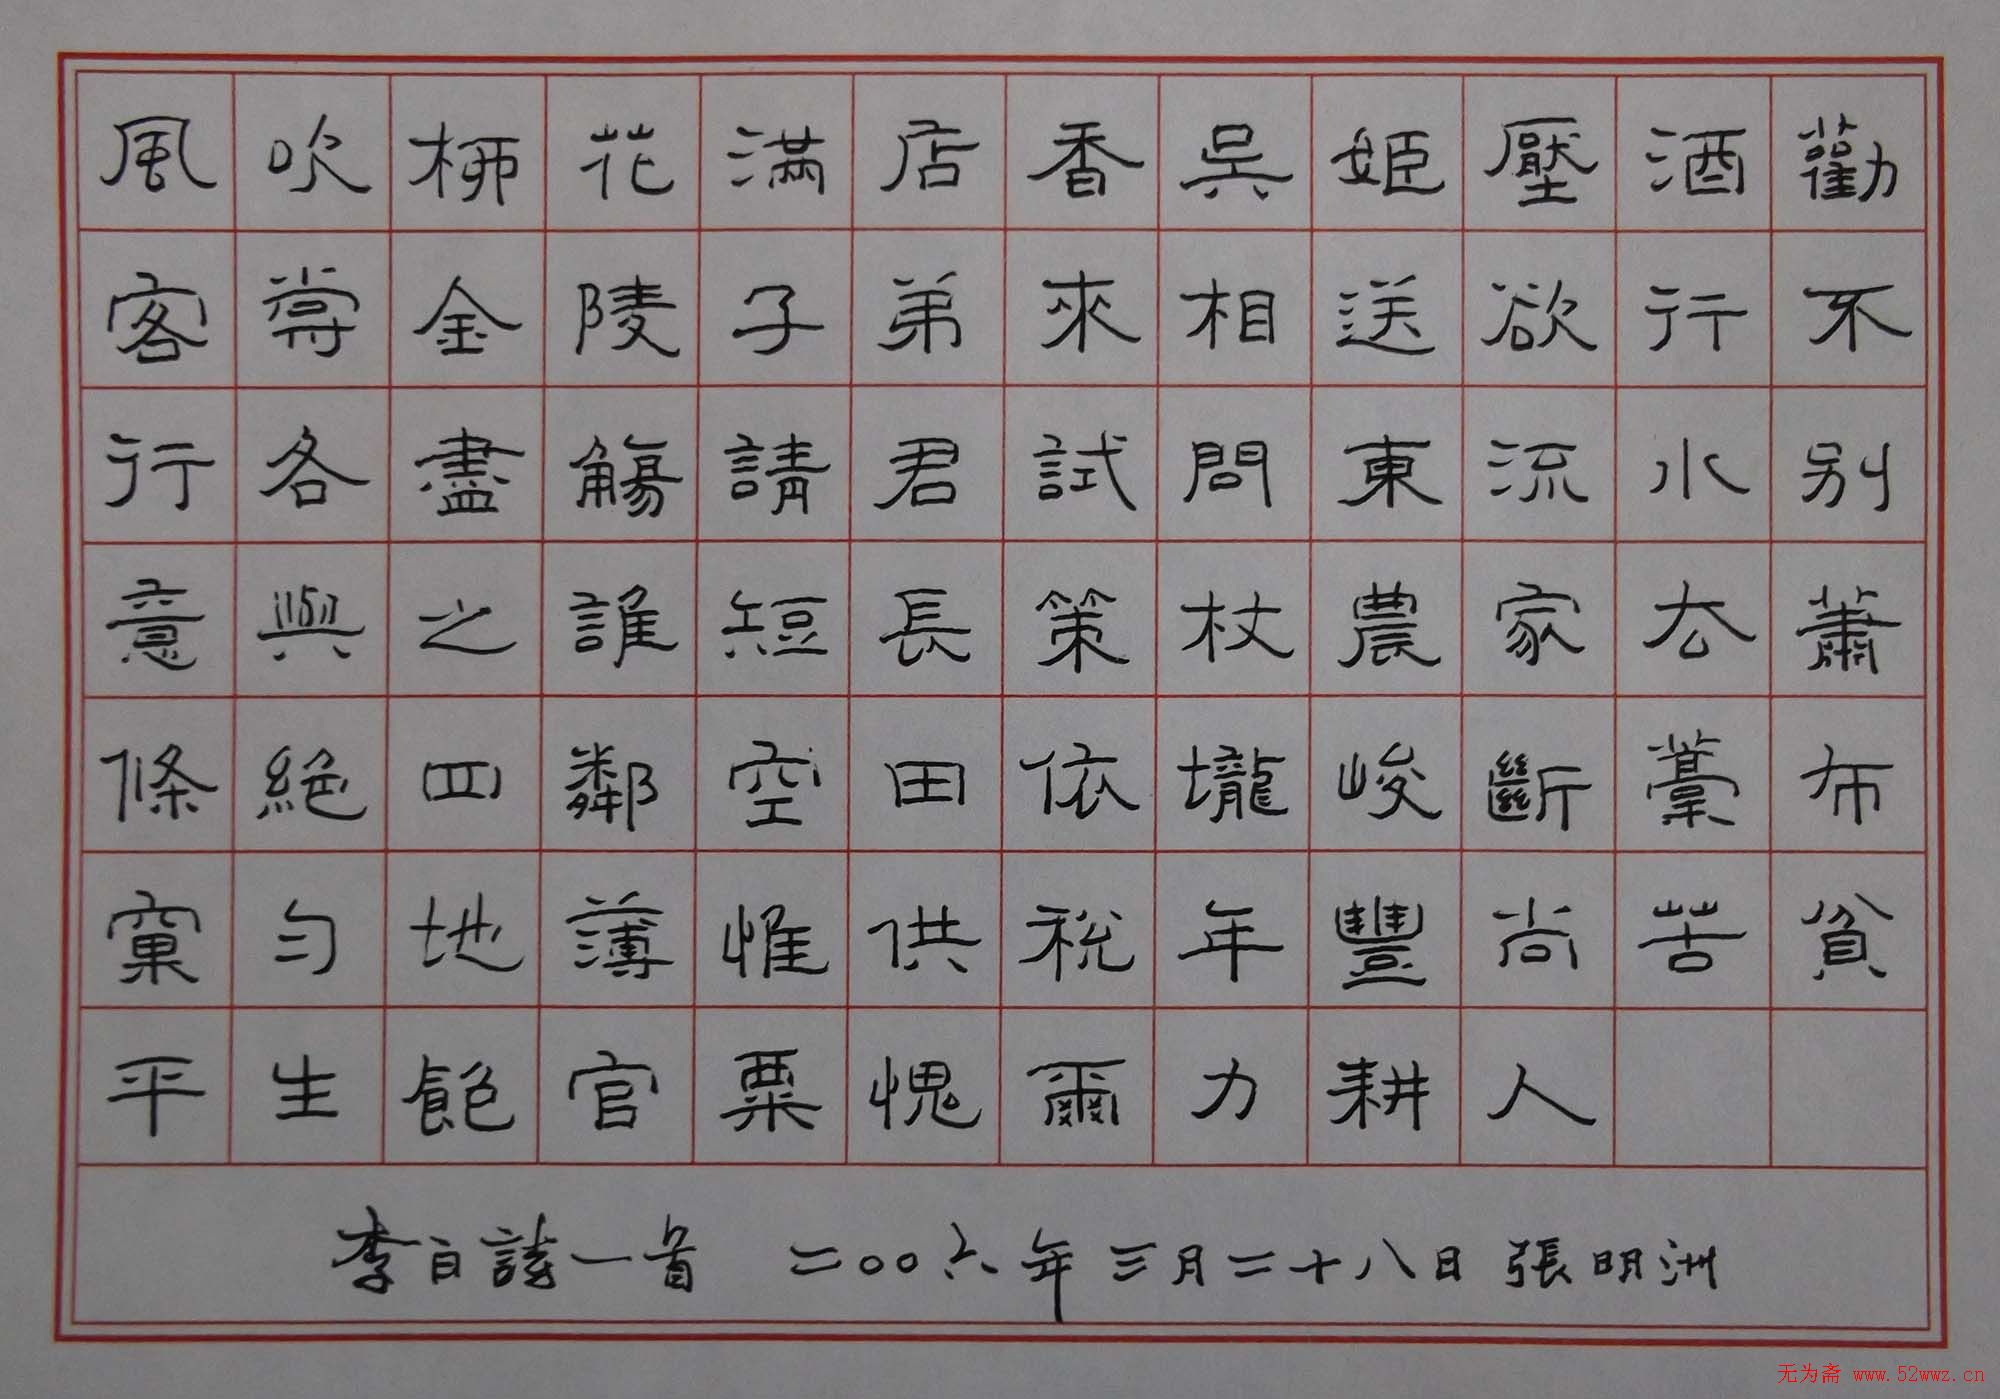 風吹柳花滿店香吳姬壓酒勸
客嘗金陵子弟來相送欲行不
行各盡觴請君試問東流水別
意與之誰短長策杖農家去蕭
條絕四鄰空田依壠峻斷藁布
窠勻地薄惟供稅年豐尚苦貧
平生飽官粟愧爾力耕人
李白詩一首 二〇〇六年三月二十八日張明洲
无为斋 www.52wwz.cn